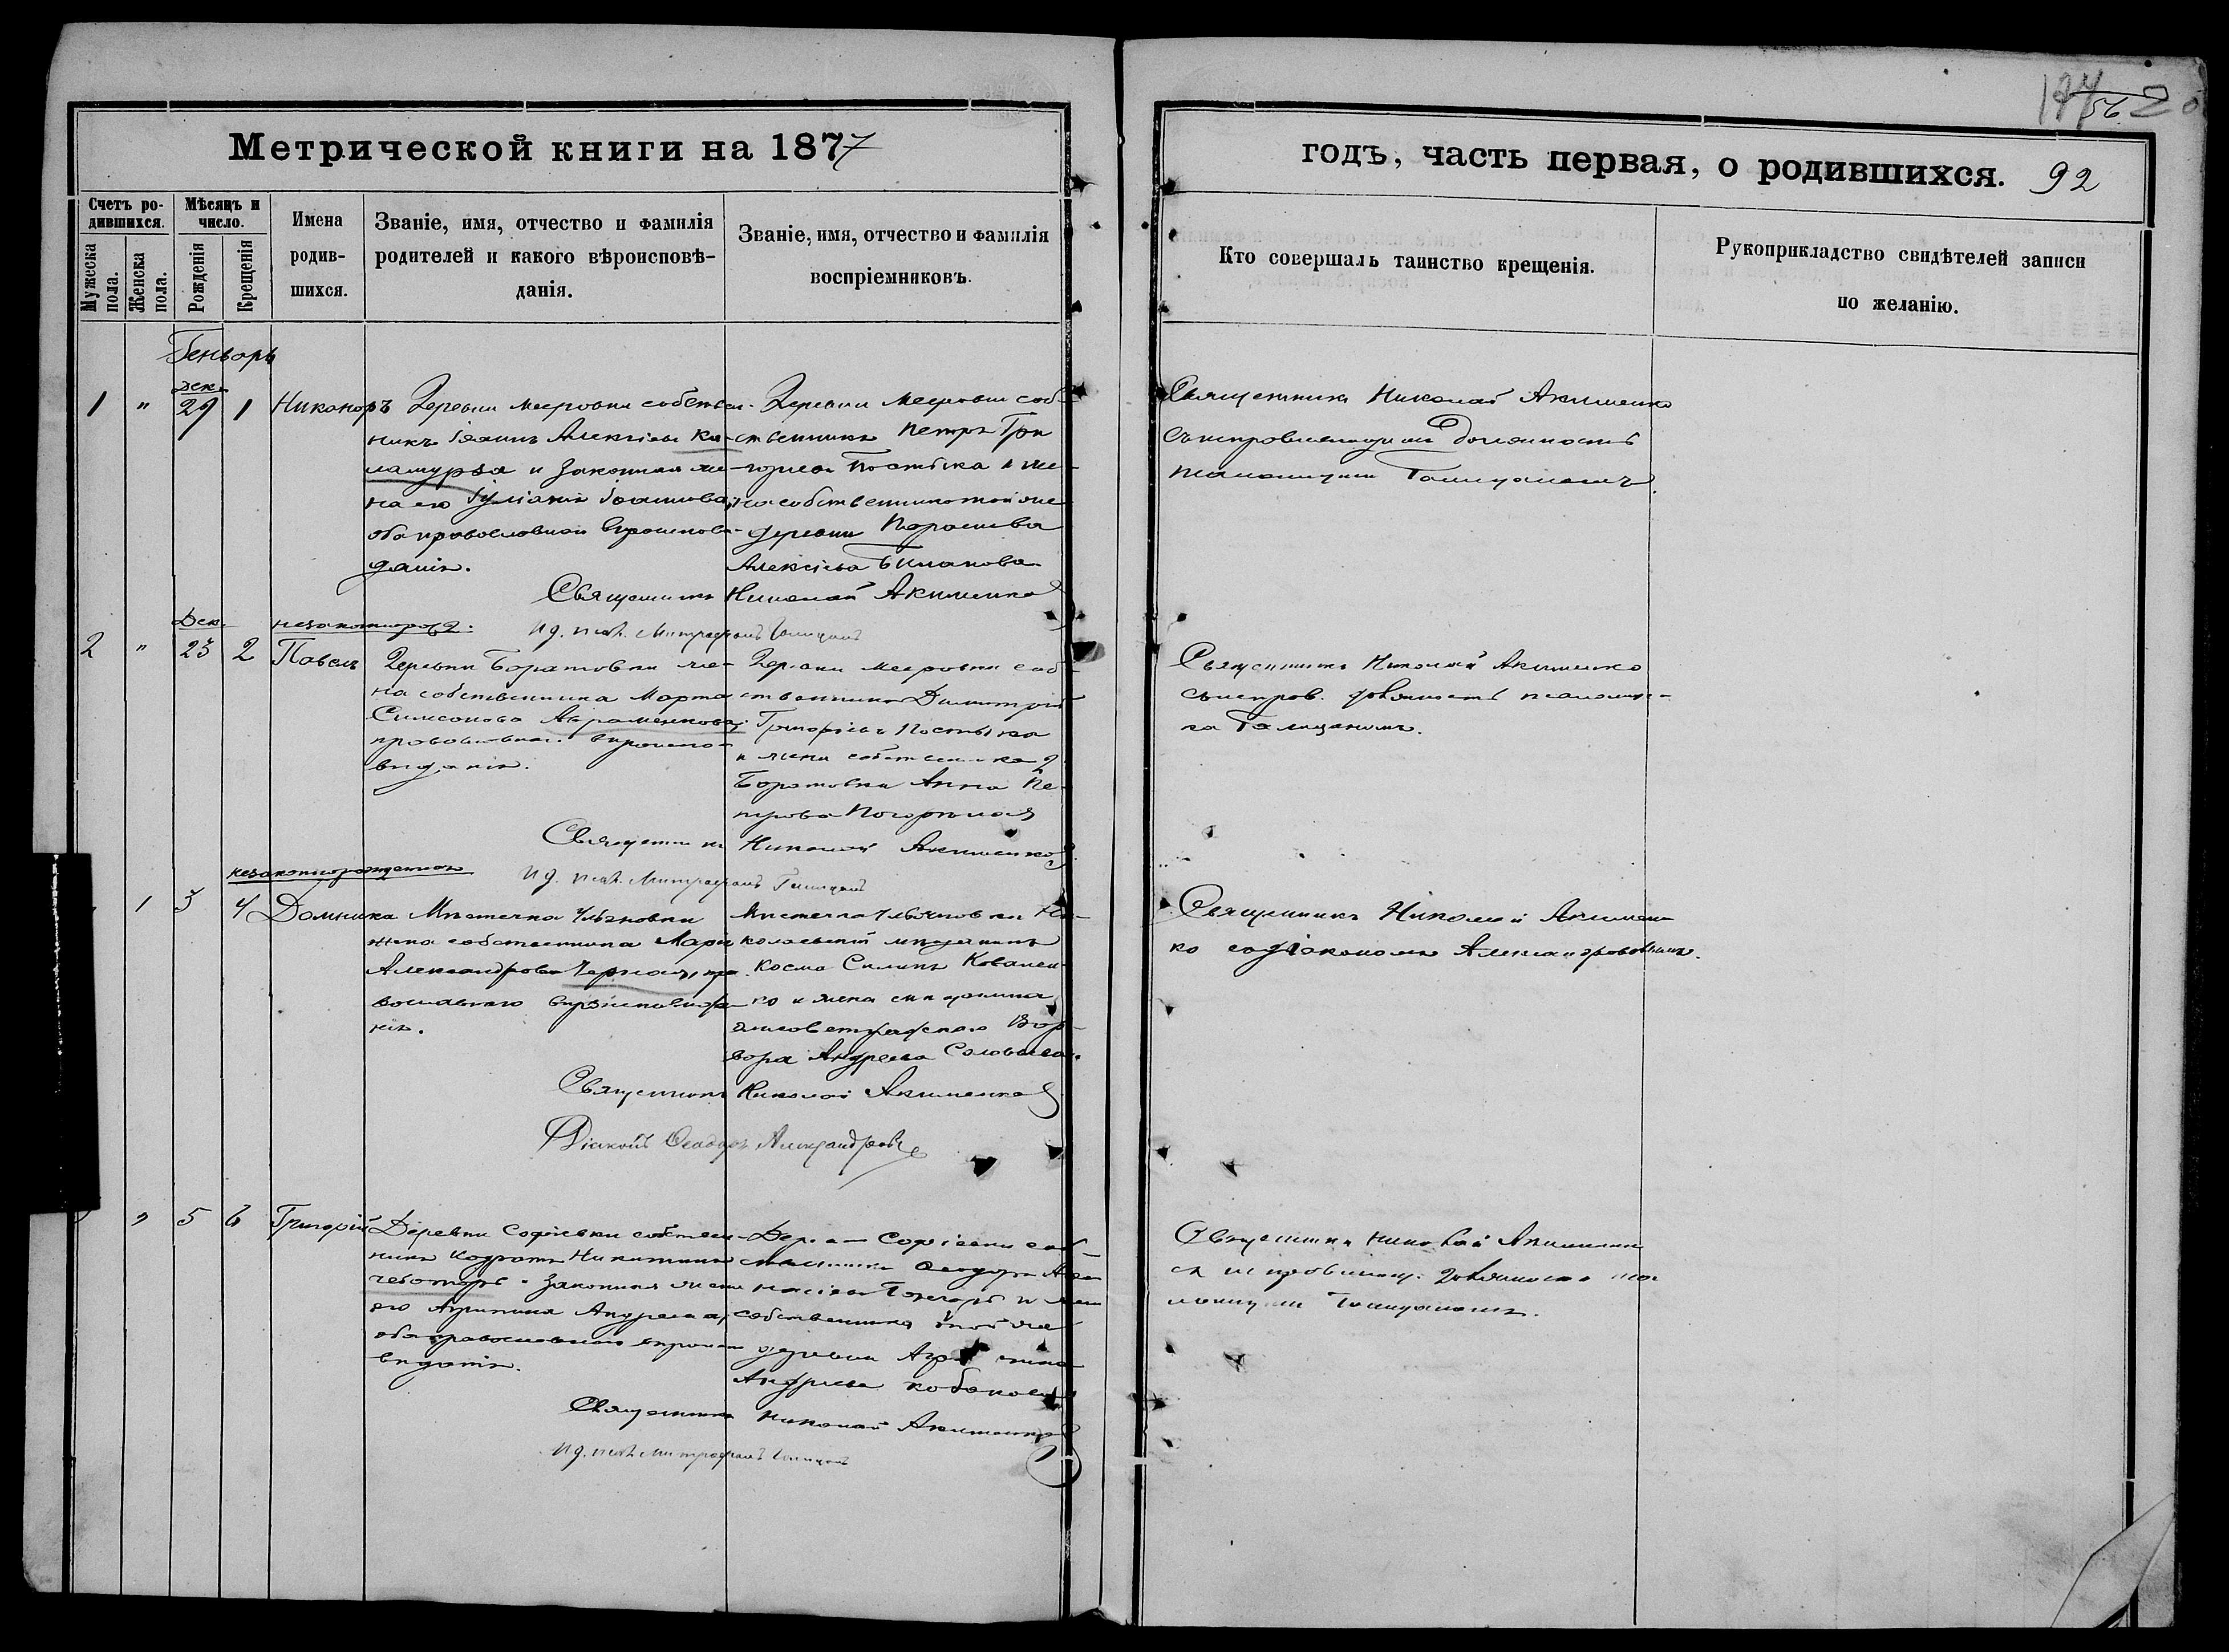 174
56
20
Метрической книги на 1877
годъ, часть первая, о родившихся. 92
Счетъ ро-
дившихся.
Мужеска
пола.
Женска
пола.
Мѣсяцъ и
число.
Рожденія
Крещенія
Имена
родив-
шихся.
Званіе, имя, отчество и фамилія
родителей и какого вѣроисповѣ-
данія.
Званіе, имя, отчество и фамилія
воспріемниковъ.
Кто совершалъ таинство крещенія.
Рукоприкладство свидѣтелей записи
по желанію.
Генварь
Дек.
1 " 29 1 Никаноръ
Деревни Мееровки собствен-
никъ Іоаннъ Алексѣевъ Ка-
и законная же-
на его Іуліанія Іоаннова,
оба православнаго вѣроисповѣ-
данія.
Деревни Мееровки соб-
ственникъ Петръ Гри
горіевъ Постыка и же-
на собственника той же
деревни Параскева
Алексіева
Священникъ Николай Акименко
съ исправляющимъ должность
псаломщика Галицкимъ.
Священникъ Николай Акименко
И д. псал. Митрофанъ
Дек.
незаконнорозд.
2 " 23 2 Павелъ
Деревни Боратовки же-
на собственника Марта
Симеонова Авраменкова,
православнаго вѣроиспо-
вѣданія.
Деревни Мееровки соб-
ственникъ Димитрій
Григоріевъ Постыка
и жена собственника д
Боратовки Анна Пе-
трова Погорѣлая
Священникъ Николай Акименко
съ исправ. должность псаломщи-
ка
Священникъ Николай Акименко
И д. псал. Митрофанъ
незаконнорожденная
1 3 4 Домника
Мѣстечка Ульяновки
жена собственника Марія
Александрова Черная, пра-
вославнаго вѣроисповѣда-
нія.
Мѣстечка Ульяновки Ни-
колаевскій мѣщанинъ
Косма Силинъ Ковален-
ко и жена мѣщанина
елисаветградскаго Вар-
вара Андреева Соловьева.
Священникъ Николай Акимен-
ко съ діакономъ Александровымъ.
Священникъ Николай Акименко
Діаконъ Ѳеодоръ Александровъ
" 5 6 Григорій
Деревни Софіевки собствен-
никъ Кодратъ Никитинъ
Чеботарь и законная жена
его Агрипина Андреева,
оба православнаго вѣроиспо
вѣданія.
Деревни Софіевки соб-
ственникъ Ѳеодоръ
и жена
собственника той же
деревни
Андреева
Священникъ Николай Акименко
съ исправляющ. должность пса-
ломщика
Священникъ Николай Акименко
И д. псал. Митрофанъ
1